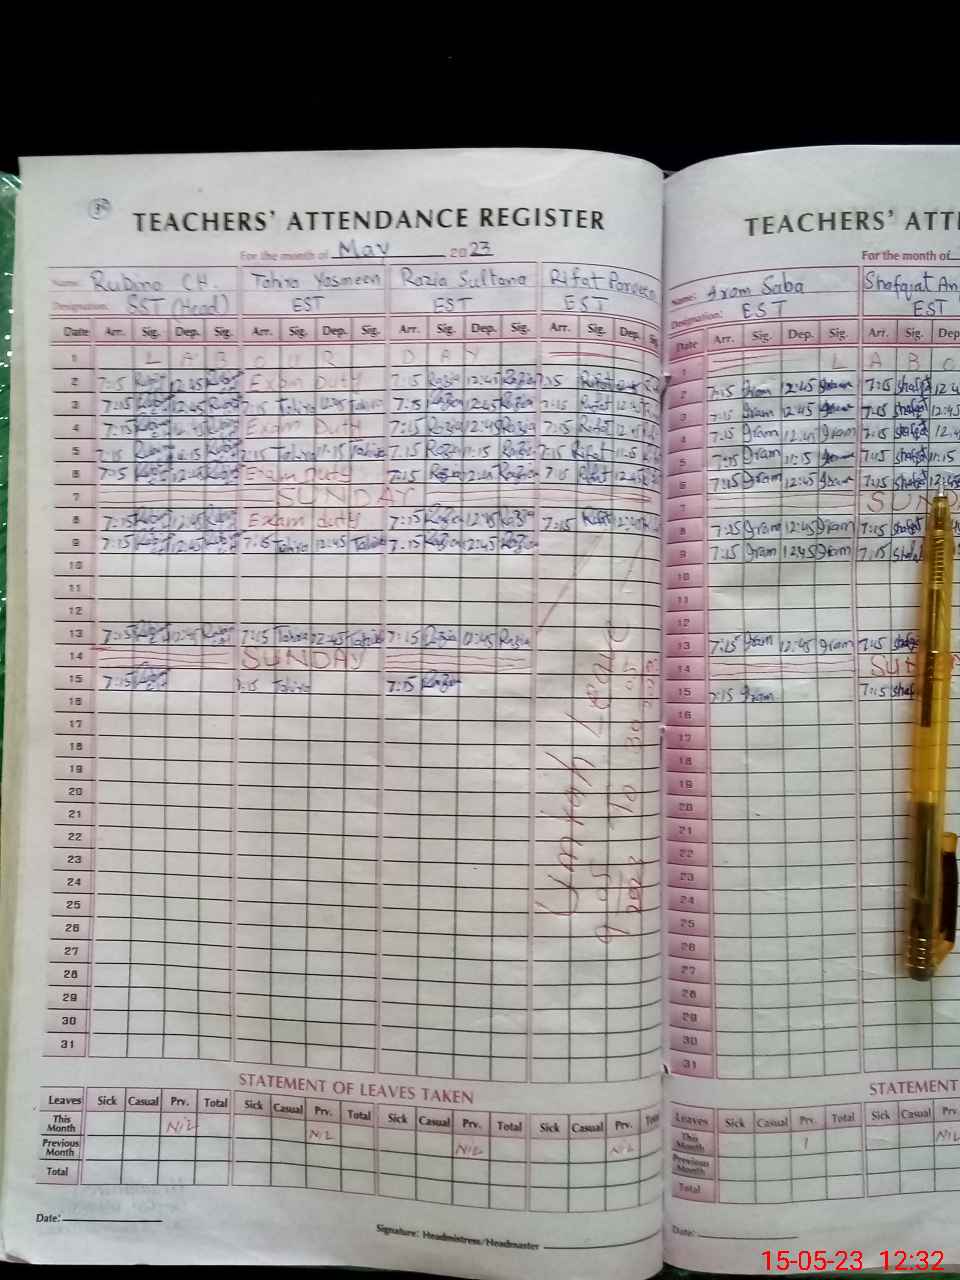 TEACHERS' ATTENDANCE REGISTER
For the month of May 2023
Name: Rubina CH. Tahira Yasmeen Razia Sultana Rifat Parveen
Designation: SST (Head) EST EST EST
Date Arr. Sig. Dep. Sig. Arr. Sig. Dep. Sig. Arr. Sig. Dep. Sig. Arr. Sig. Dep. Sig.
1 LABOUR DAY
2 7:15 12:45 Exam Duty 7:15 Razia 12:45 Razia 7:15 Rifat
3 7:15 12:45 7:15 Tahira 12:45 Tahira 7:15 Razia 12:45 Razia 7:15 Rifat 12:45
4 7:15 12:45 Exam Duty 7:15 Razia 12:45 Razia 7:15 Rifat 12:45
5 7:15 11:15 7:15 Tahira 11:15 Tahira 7:15 Razia 11:15 Razia 7:15 Rifat 11:15
6 7:15 12:45 Exam Duty 7:15 Razia 12:45 Razia 7:15 Rifat 12:45
7 SUNDAY
8 7:15 12:45 Exam duty 7:15 Razia 12:45 Razia 7:15 Rifat 12:45
9 7:15 12:45 7:15 Tahira 12:45 Tahira 7:15 Razia 12:45 Razia
10
11
12
13 7:15 12:45 7:15 Tahira 12:45 Tahira 7:15 Razia 12:45 Razia
14 SUNDAY
15 7:15 7:15 Tahira 7:15 Razia
16
17
18
19
20
21
22
23
24
25
26
27
28
29
30
31
Umrah Leave
9 05 2023 to 30 05 2023
STATEMENT OF LEAVES TAKEN
Leaves Sick Casual Prv. Total Sick Casual Prv. Total Sick Casual Prv. Total Sick Casual Prv. Total
This Month NIL NIL NIL NIL
Previous Month
Total
Date:
Signature: Headmistress/Headmaster
TEACHERS' ATTE
For the month of
Name: Iram Saba Shafqat An
Designation: EST EST
Date Arr. Sig. Dep. Sig. Arr. Sig. Dep
1 LABO
2 7:15 Iram 12:45 Iram 7:15 Shafqat 12:4
3 7:15 Iram 12:45 Iram 7:15 Shafqat 12:45
4 7:15 Iram 12:45 Iram 7:15 Shafqat 12:4
5 7:15 Iram 11:15 Iram 7:15 Shafqat 11:15
6 7:15 Iram 12:45 Iram 7:15 Shafqat 12:45
7 SUND
8 7:15 Iram 12:45 Iram 7:15 Shafqat
9 7:15 Iram 12:45 Iram 7:15 Shafqat
10
11
12
13 7:15 Iram 12:45 Iram 7:15 Shafqat
14 SUN
15 7:15 Iram 7:15 Shaf
16
17
18
19
20
21
22
23
24
25
26
27
28
29
30
31
STATEMENT
Leaves Sick Casual Prv. Total Sick Casual Prv.
This Month 1 NIL
Previous Month
Total
Date:
15-05-23 12:32